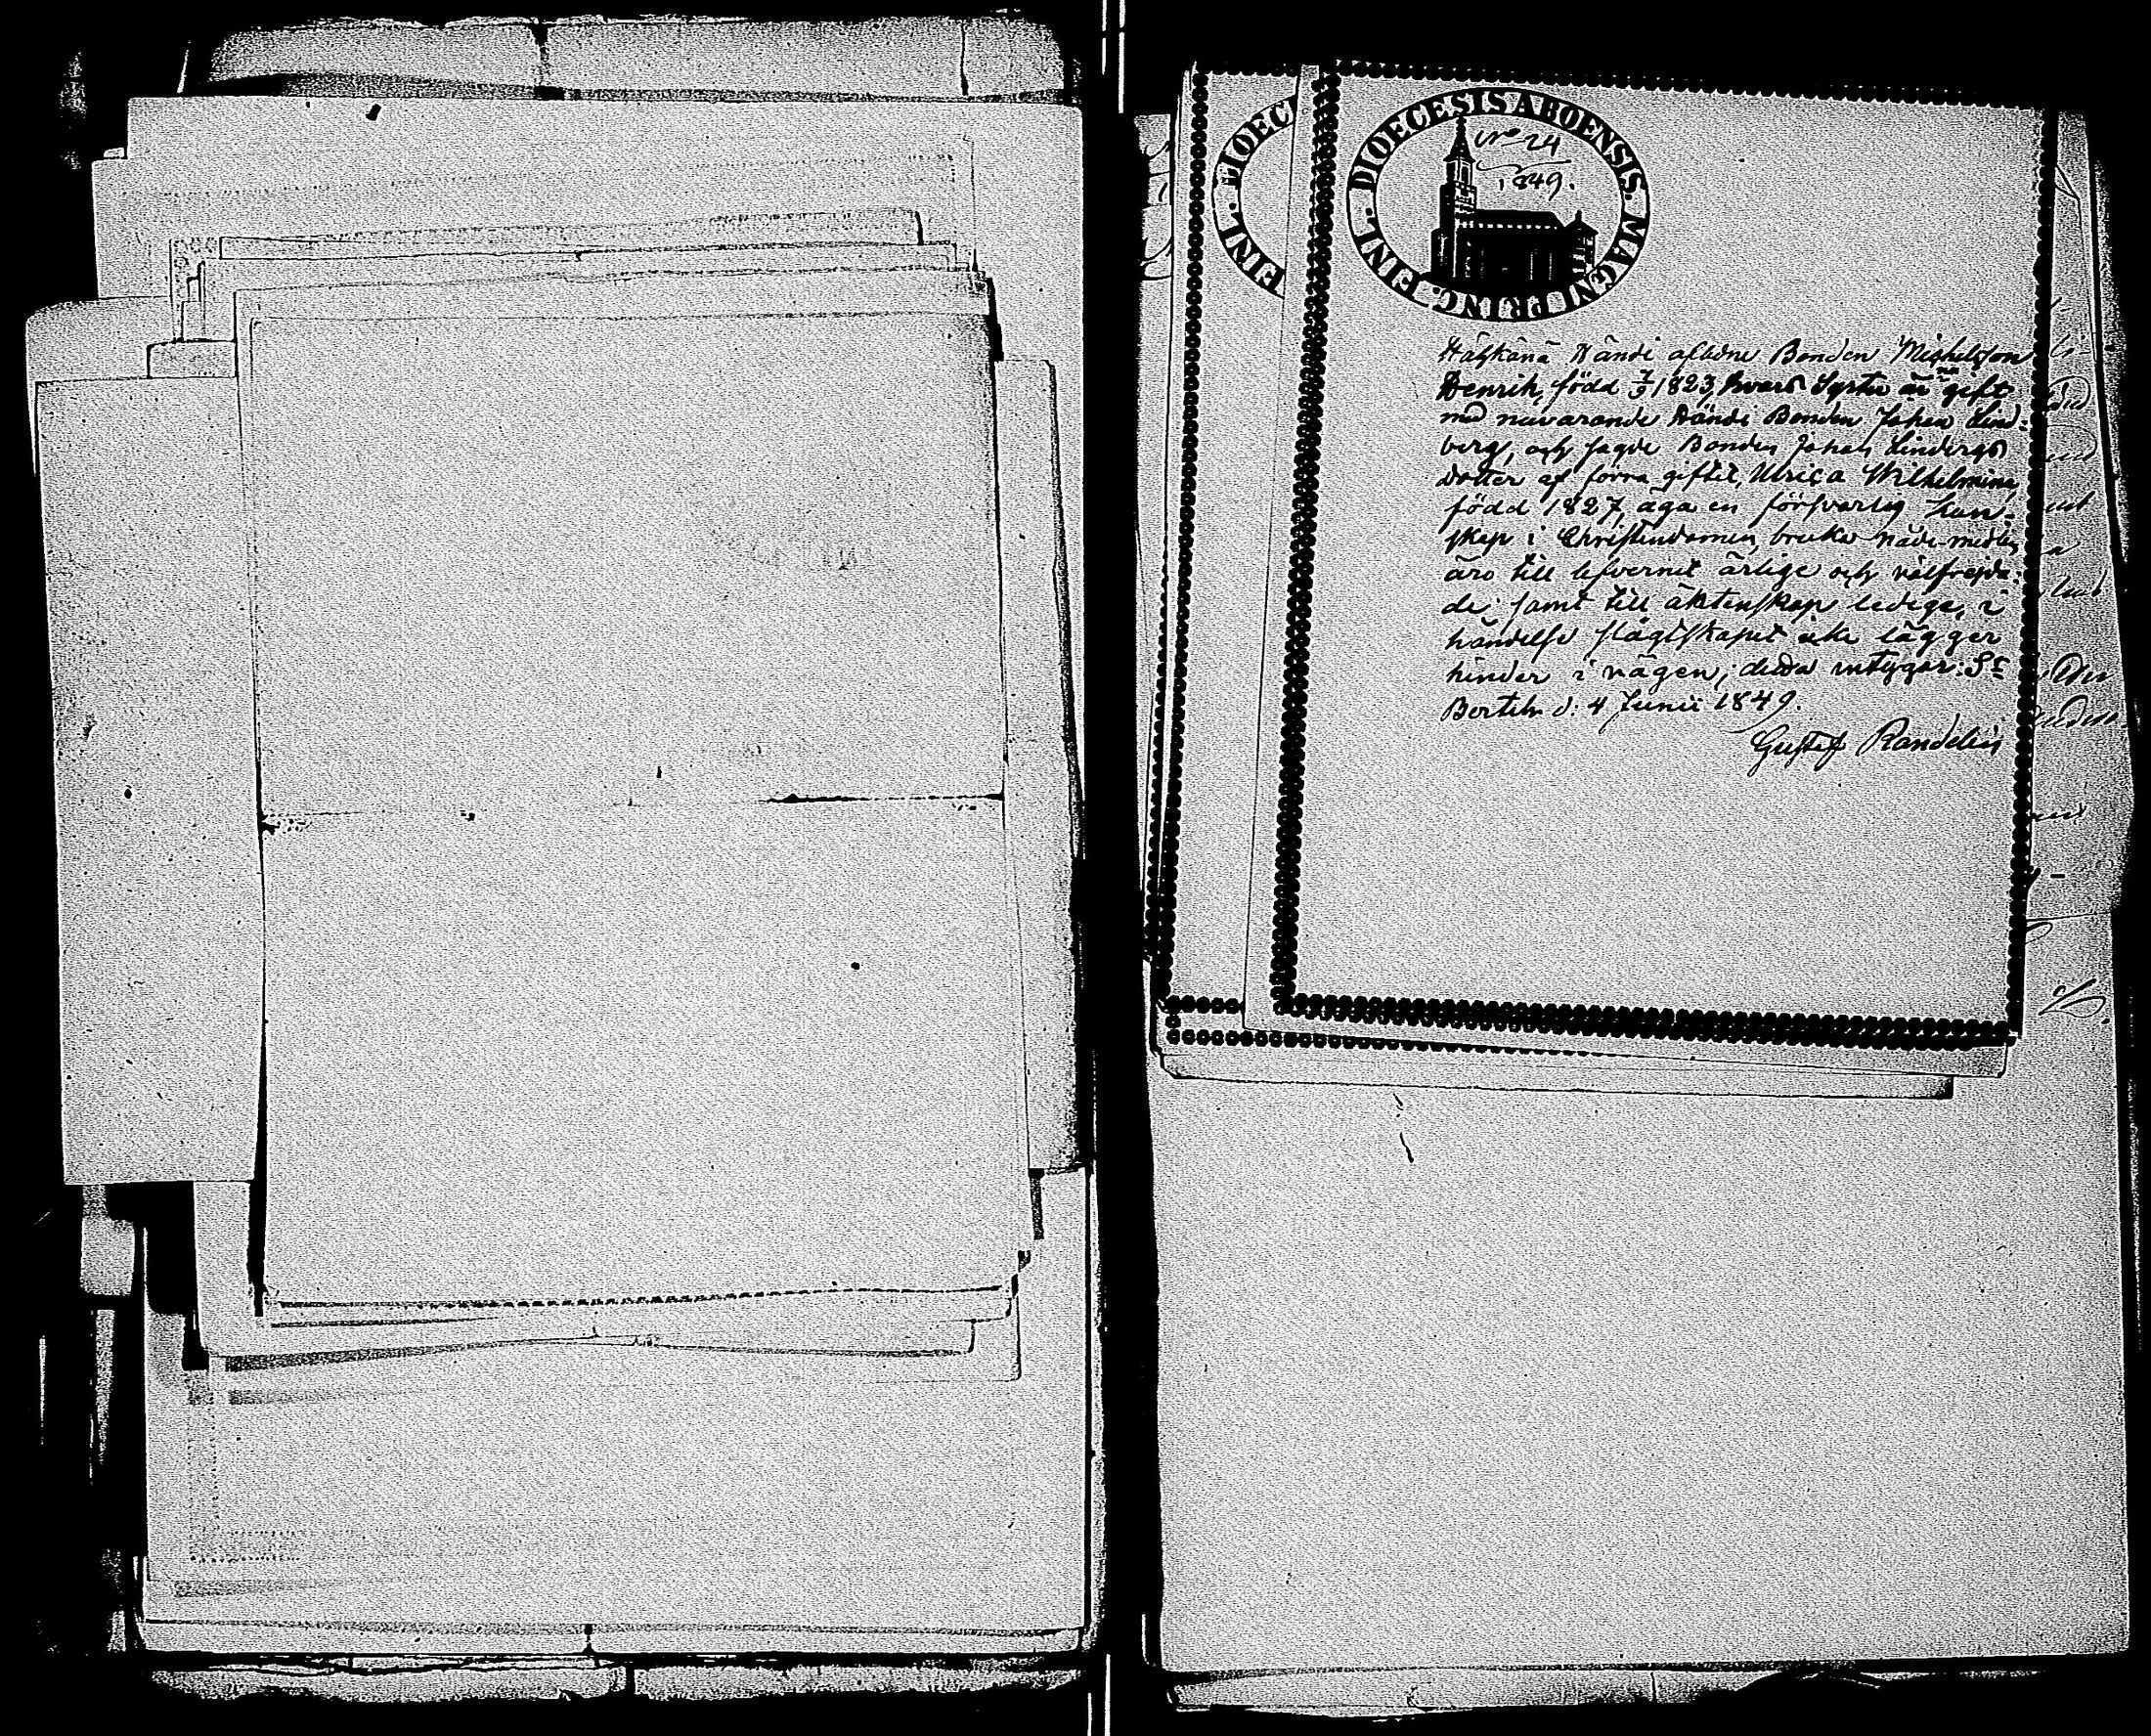 DIOECESIS ABOENSIS. MAGNI PRINC. FINL.
No 24
1849.
FINL. DIOEC
Händi aflidne Bonden Michelsson
Henrik, född 7/9 1823, hvars Syster är gift
med nuvarande Händi Bonden Johan Lind:
berg, och sagde Bonden Johan Lindbergs
dotter af förra giftet, Ulrica Wilhelmina,
född 1827, äga en försvarlig kun:
skap i Christendomen, bruka nåde-medlen
äro till lefvernet ärlige och välfrejda:
de; samt till äktenskap ledige, i
händelse slägtskapet icke lägger
hinder i vägen; detta intygar: St
Bertils d: 4 Junii 1849.
Gustaf Randelin